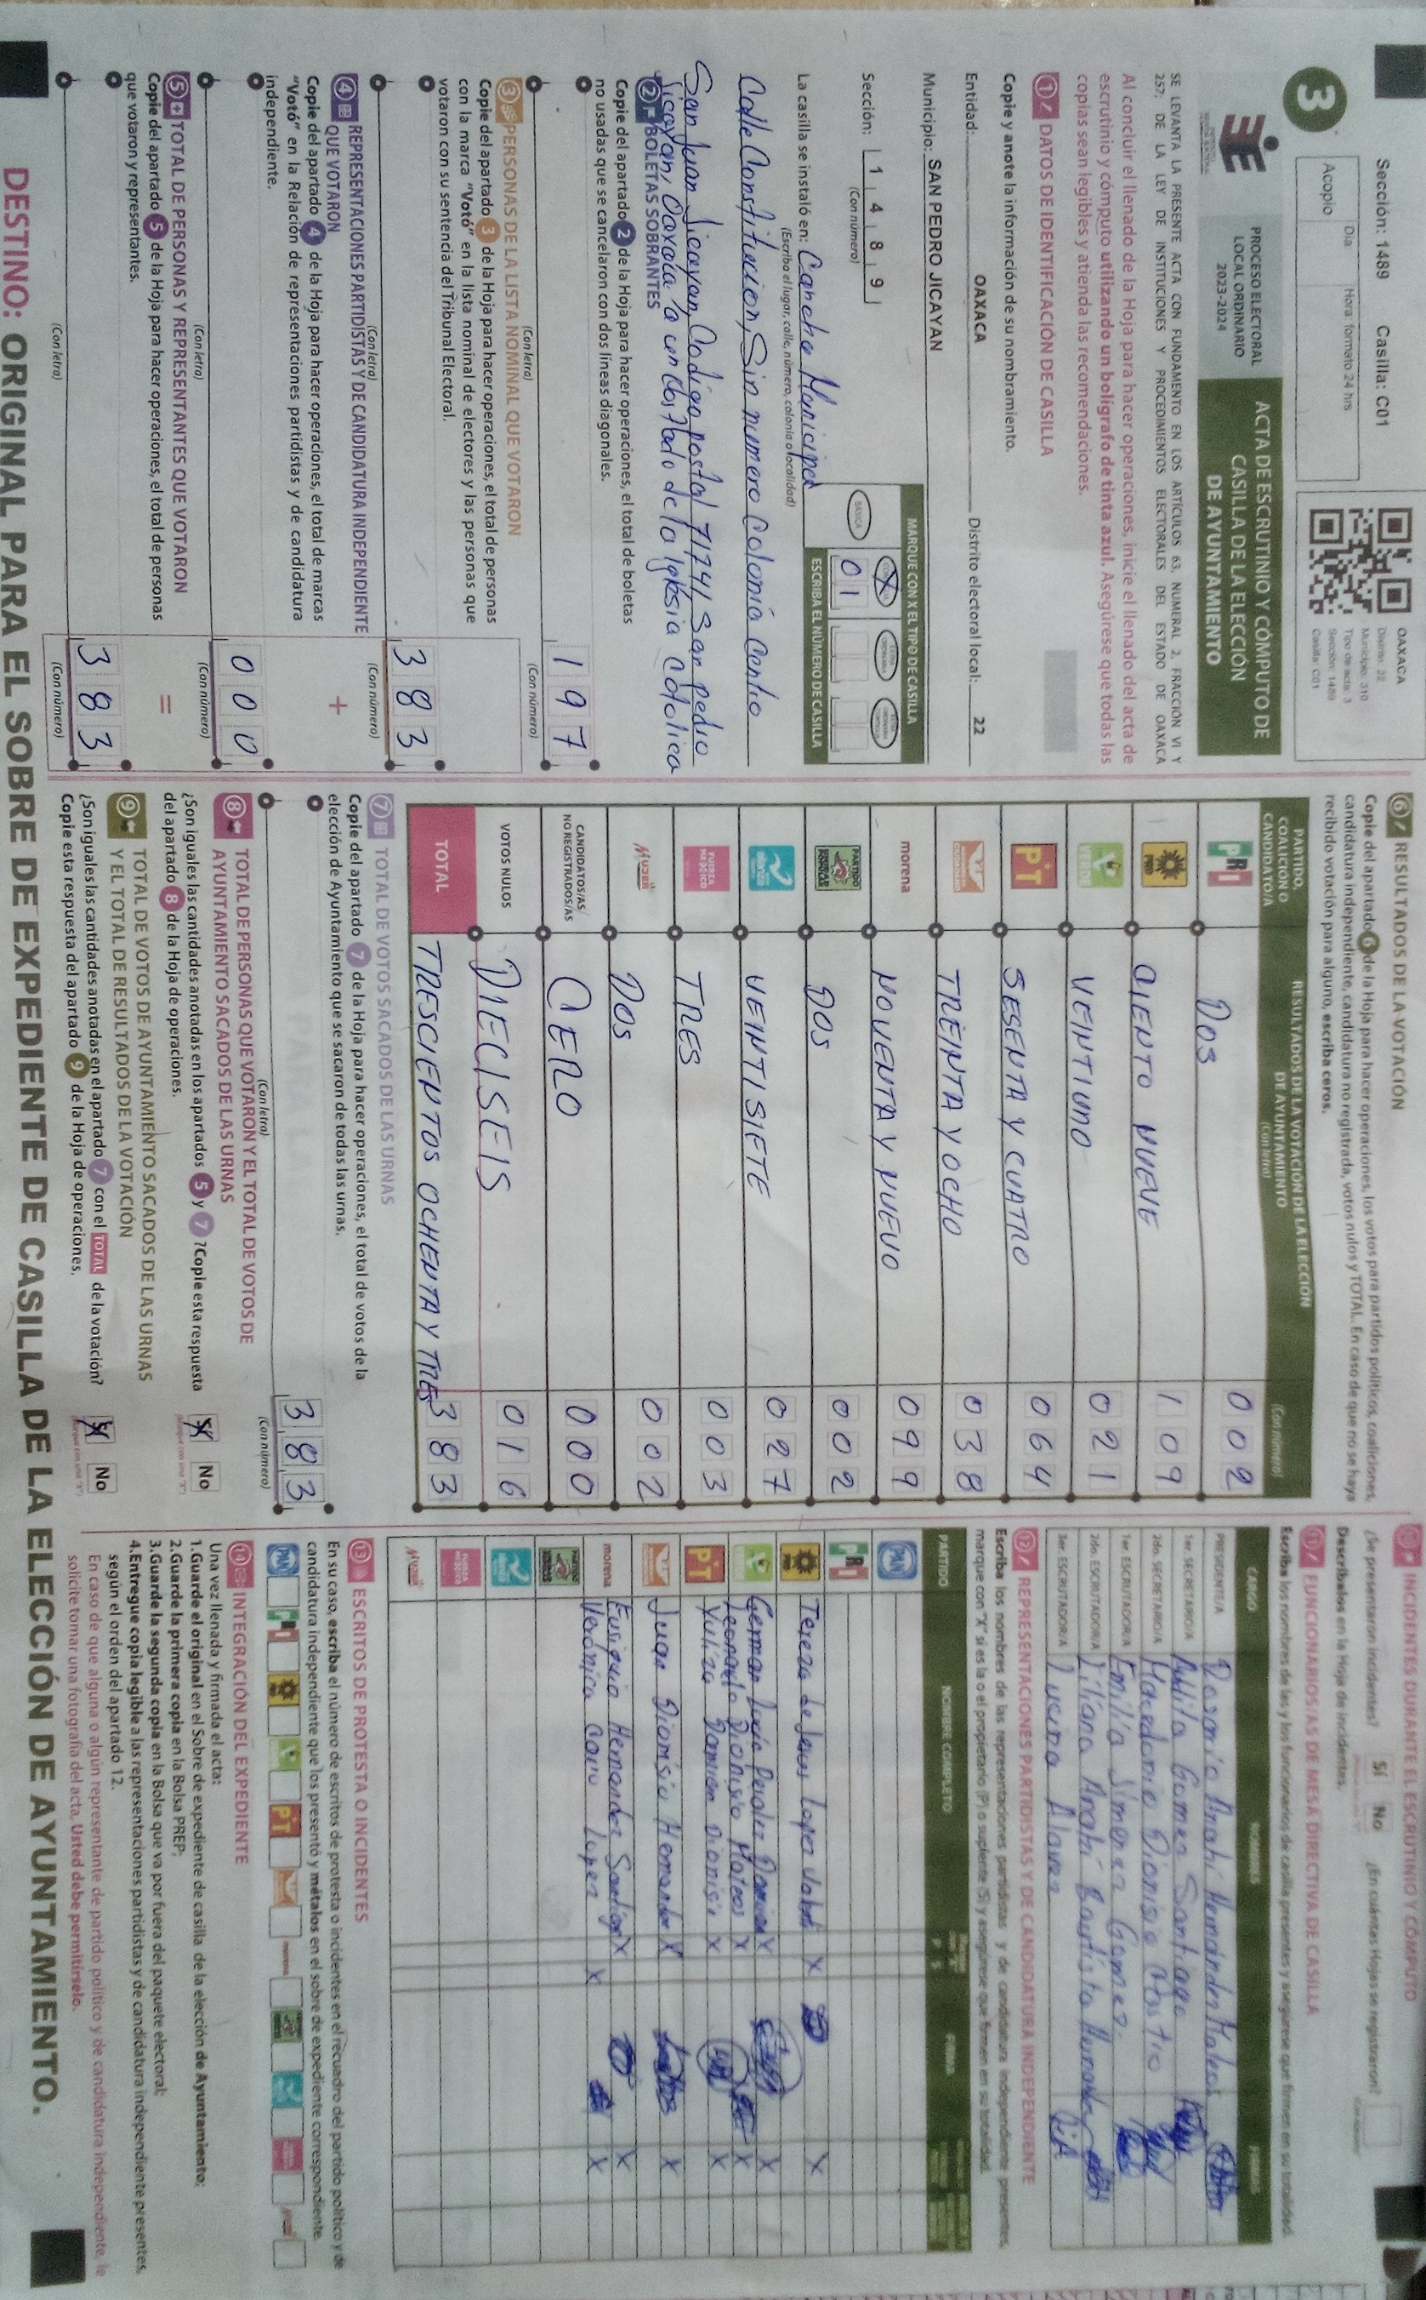 Sección: 1489 Casilla: C01
Día Hora: formato 24 hrs
Acopio
3
OAXACA
Distrito: 22
Municipio: 310
Tipo de acta: 3
Sección: 1489
Casilla: C01
PROCESO ELECTORAL
LOCAL ORDINARIO
2023-2024
ACTA DE ESCRUTINIO Y CÓMPUTO DE
CASILLA DE LA ELECCIÓN
DE AYUNTAMIENTO
SE LEVANTA LA PRESENTE ACTA CON FUNDAMENTO EN LOS ARTÍCULOS 63, NUMERAL 2, FRACCIÓN VI Y
257; DE LA LEY DE INSTITUCIONES Y PROCEDIMIENTOS ELECTORALES DEL ESTADO DE OAXACA
Al concluir el llenado de la Hoja para hacer operaciones, inicie el llenado del acta de
escrutinio y cómputo utilizando un bolígrafo de tinta azul. Asegúrese que todas las
copias sean legibles y atienda las recomendaciones.
1 DATOS DE IDENTIFICACIÓN DE CASILLA
Copie y anote la información de su nombramiento.
Entidad: OAXACA Distrito electoral local: 22
Municipio: SAN PEDRO JICAYAN
Sección: 1 4 8 9
(Con número)
MARQUE CON X EL TIPO DE CASILLA
BÁSICA
X
0 1
ESCRIBA EL NÚMERO DE CASILLA
La casilla se instaló en: Cancha Municipal
(Escriba el lugar, calle, número, colonia o localidad)
Calle Constitucion, Sin numero Colonia Centro
San Juan Jicayan, Codigo postal 71741, San pedro
Jicayan, Oaxaca a un costado de la Iglesia Catolica
2 BOLETAS SOBRANTES
Copie del apartado 2 de la Hoja para hacer operaciones, el total de boletas
no usadas que se cancelaron con dos líneas diagonales.
1 9 7
(Con letra) (Con número)
3 PERSONAS DE LA LISTA NOMINAL QUE VOTARON
Copie del apartado 3 de la Hoja para hacer operaciones, el total de personas
con la marca "Votó" en la lista nominal de electores y las personas que
votaron con su sentencia del Tribunal Electoral.
3 8 3
(Con letra) (Con número)
4 REPRESENTACIONES PARTIDISTAS Y DE CANDIDATURA INDEPENDIENTE
QUE VOTARON
+
Copie del apartado 4 de la Hoja para hacer operaciones, el total de marcas
"Votó" en la Relación de representaciones partidistas y de candidatura
independiente.
0 0 0
(Con letra) (Con número)
5 TOTAL DE PERSONAS Y REPRESENTANTES QUE VOTARON
=
Copie del apartado 5 de la Hoja para hacer operaciones, el total de personas
que votaron y representantes.
3 8 3
(Con letra) (Con número)
6 RESULTADOS DE LA VOTACIÓN
Copie del apartado 6 de la Hoja para hacer operaciones, los votos para partidos políticos, coaliciones,
candidatura independiente, candidatura no registrada, votos nulos y TOTAL. En caso de que no se haya
recibido votación para alguno, escriba ceros.
PARTIDO,
COALICIÓN O
CANDIDATO/A
RESULTADOS DE LA VOTACIÓN DE LA ELECCIÓN
DE AYUNTAMIENTO
(Con letra) (Con número)
PRI DOS 0 0 2
PRD CIENTO NUEVE 1 0 9
VERDE VEINTIUNO 0 2 1
PT SESENTA Y CUATRO 0 6 4
TREINTA Y OCHO 0 3 8
morena NOVENTA Y NUEVO 0 9 9
PARTIDO DOS 0 0 2
alianza VEINTISIETE 0 2 7
FUERZA MÉXICO TRES 0 0 3
MUJER DOS 0 0 2
CANDIDATOS/AS
NO REGISTRADOS/AS CERO 0 0 0
VOTOS NULOS DIECISEIS 0 1 6
TOTAL TRESCIENTOS OCHENTA Y TRES 3 8 3
7 TOTAL DE VOTOS SACADOS DE LAS URNAS
Copie del apartado 7 de la Hoja para hacer operaciones, el total de votos de la
elección de Ayuntamiento que se sacaron de todas las urnas.
3 8 3
(Con letra) (Con número)
8 TOTAL DE PERSONAS QUE VOTARON Y EL TOTAL DE VOTOS DE
AYUNTAMIENTO SACADOS DE LAS URNAS
¿Son iguales las cantidades anotadas en los apartados 5 y 7 ? Copie esta respuesta
del apartado 8 de la Hoja de operaciones.
X No
9 TOTAL DE VOTOS DE AYUNTAMIENTO SACADOS DE LAS URNAS
Y EL TOTAL DE RESULTADOS DE LA VOTACIÓN
¿Son iguales las cantidades anotadas en el apartado 7 con el TOTAL de la votación?
Copie esta respuesta del apartado 9 de la Hoja de operaciones.
X No
10 INCIDENTES DURANTE EL ESCRUTINIO Y CÓMPUTO
¿Se presentaron incidentes? Sí No ¿En cuántas Hojas se registraron?
Descríbalos en la Hoja de incidentes.
11 FUNCIONARIOS/AS DE MESA DIRECTIVA DE CASILLA
Escriba los nombres de las y los funcionarios de casilla presentes y asegúrese que firmen en su totalidad.
CARGO NOMBRES FIRMAS
PRESIDENTE/A Anahí Hernández Mateos
1er. SECRETARIO/A Gomez Santiago
2do. SECRETARIO/A Macedonio Dionisio
1er. ESCRUTADOR/A Emilia Jimenez Gomez.
2do. ESCRUTADOR/A Liliana Anahí Bautista
3er. ESCRUTADOR/A
12 REPRESENTACIONES PARTIDISTAS Y DE CANDIDATURA INDEPENDIENTE
Escriba los nombres de las representaciones partidistas y de candidatura independiente presentes,
marque con "X" si es la o el propietario (P) o suplente (S) y asegúrese que firmen en su totalidad.
PARTIDO NOMBRE COMPLETO P S FIRMA
PAN
PRI
PRD Tereza de Jesus Lopez X X
VERDE German X X
Leonardo Dionisio Mateos X X
PT Yuliza Damian Dionisio X X
Juan Dionisio Hernandez X X
Hernandez Santiago X X
morena Verónica Lopez X X
alianza
FUERZA MÉXICO
MUJER
13 ESCRITOS DE PROTESTA O INCIDENTES
En su caso, escriba el número de escritos de protesta o incidentes en el recuadro del partido político y de
candidatura independiente que los presentó y métalos en el sobre de expediente correspondiente.
PAN PRI PRD PT morena
14 INTEGRACIÓN DEL EXPEDIENTE
Una vez llenada y firmada el acta:
1.Guarde el original en el Sobre de expediente de casilla de la elección de Ayuntamiento;
2.Guarde la primera copia en la Bolsa PREP;
3.Guarde la segunda copia en la Bolsa que va por fuera del paquete electoral;
4.Entregue copia legible a las representaciones partidistas y de candidatura independiente presentes,
según el orden del apartado 12.
En caso de que alguna o algún representante de partido político y de candidatura independiente, le
solicite tomar una fotografía del acta, Usted debe permitírselo.
DESTINO: ORIGINAL PARA EL SOBRE DE EXPEDIENTE DE CASILLA DE LA ELECCIÓN DE AYUNTAMIENTO.